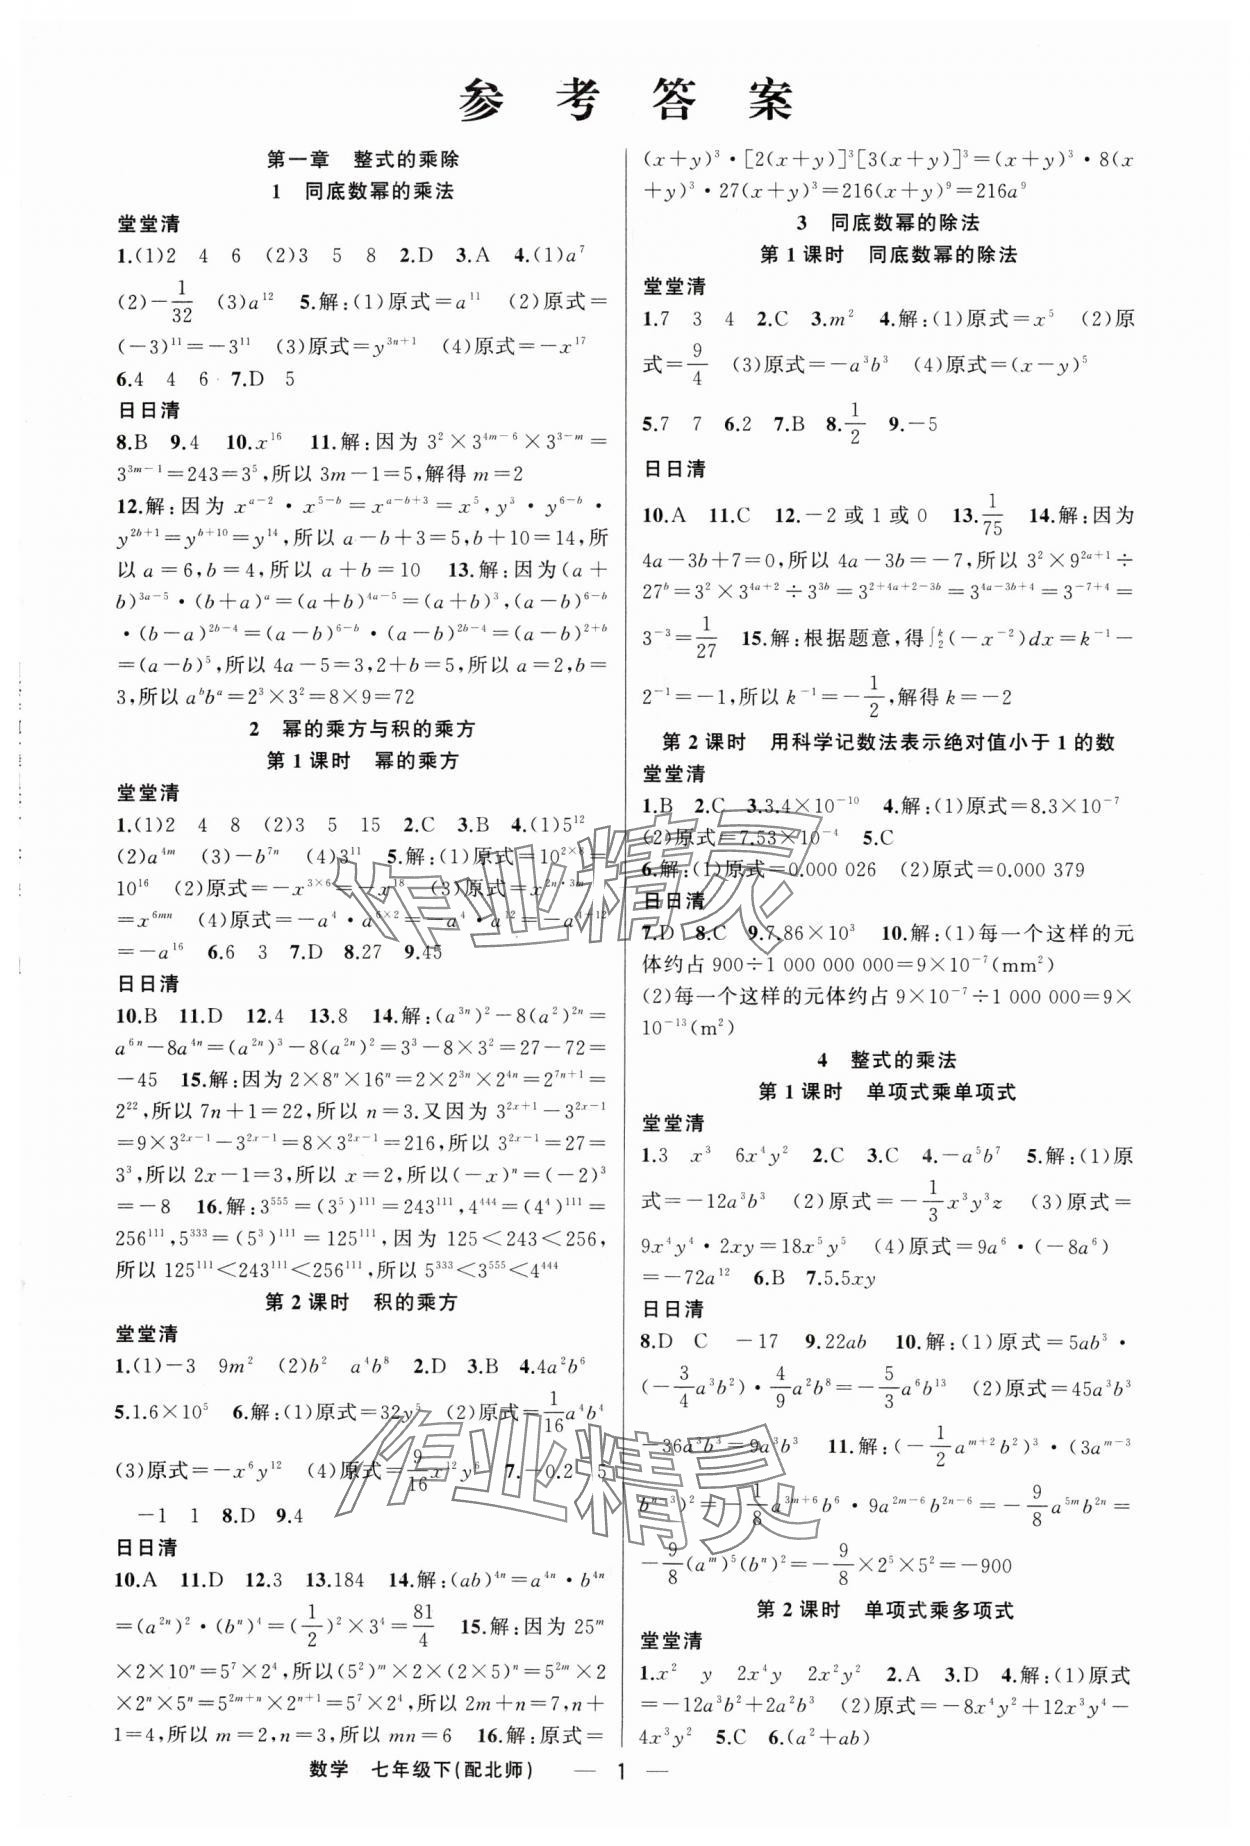 参 考 答 案
第一章 整式的乘除
1 同底数幂的乘法
堂堂清
1.(1)2 4 6 (2)3 5 8 2.D 3.A 4.(1)a⁷
(2)-1/32 (3)a¹² 5.解:(1)原式=a¹¹ (2)原式=
(-3)¹¹=-3¹¹ (3)原式=y³ⁿ⁺¹ (4)原式=-x¹⁷
6.4 4 6 7.D 5
日日清
8.B 9.4 10.x¹⁶ 11.解:因为 3²×3^(4m-6)×3^(3-m)=
3^(3m-1)=243=3⁵,所以 3m-1=5,解得 m=2
12.解:因为 x^(a-2)·x^(5-b)=x^(a-b+3)=x⁵,y³·y^(6-b)·
y^(2b+1)=y^(b+10)=y¹⁴,所以 a-b+3=5,b+10=14,所
以 a=6,b=4,所以 a+b=10 13.解:因为(a+
b)^(3a-5)·(b+a)^a=(a+b)^(4a-5)=(a+b)³,(a-b)^(6-b)
·(b-a)^(2b-4)=(a-b)^(6-b)·(a-b)^(2b-4)=(a-b)^(2+b)
=(a-b)⁵,所以 4a-5=3,2+b=5,所以 a=2,b=
3,所以 a^b b^a=2³×3²=8×9=72
2 幂的乘方与积的乘方
第 1 课时 幂的乘方
堂堂清
1.(1)2 4 8 (2)3 5 15 2.C 3.B 4.(1)5¹²
(2)a^(4m) (3)-b^(7n) (4)3¹¹ 5.解:(1)原式=10^(2×8)=
10¹⁶ (2)原式=-x^(3×6)=-x¹⁸ (3)原式=x^(2n·3m)
=x^(6mn) (4)原式=-a⁴·a^(6×2)=-a⁴·a¹²=-a^(4+12)
=-a¹⁶ 6.6 3 7.D 8.27 9.45
日日清
10.B 11.D 12.4 13.8 14.解:(a^(3n))²-8(a²)^(2n)=
a^(6n)-8a^(4n)=(a^(2n))³-8(a^(2n))²=3³-8×3²=27-72=
-45 15.解:因为 2×8ⁿ×16ⁿ=2×2^(3n)×2^(4n)=2^(7n+1)=
2²²,所以 7n+1=22,所以 n=3.又因为 3^(2x+1)-3^(2x-1)
=9×3^(2x-1)-3^(2x-1)=8×3^(2x-1)=216,所以 3^(2x-1)=27=
3³,所以 2x-1=3,所以 x=2,所以(-x)ⁿ=(-2)³
=-8 16.解:3⁵⁵⁵=(3⁵)¹¹¹=243¹¹¹,4⁴⁴⁴=(4⁴)¹¹¹=
256¹¹¹,5³³³=(5³)¹¹¹=125¹¹¹,因为 125<243<256,
所以 125¹¹¹<243¹¹¹<256¹¹¹,所以 5³³³<3⁵⁵⁵<4⁴⁴⁴
第 2 课时 积的乘方
堂堂清
1.(1)-3 9m² (2)b² a⁴b⁸ 2.D 3.B 4.4a²b⁶
5.1.6×10⁵ 6.解:(1)原式=32y⁵ (2)原式=1/16 a⁴b⁴
(3)原式=-x⁶y¹² (4)原式=9/16 x¹²y⁶ 7.-0.2 5
-1 1 8.D 9.4
日日清
10.A 11.D 12.3 13.184 14.解:(ab)^(4n)=a^(4n)·b^(4n)
=(a^(2n))²·(bⁿ)⁴=(1/2)²×3⁴=81/4 15.解:因为 25^m
×2×10ⁿ=5⁷×2⁴,所以(5²)^m×2×(2×5)ⁿ=5^(2m)×2
×2ⁿ×5ⁿ=5^(2m+n)×2^(n+1)=5⁷×2⁴,所以 2m+n=7,n+
1=4,所以 m=2,n=3,所以 mn=6 16.解:原式=
(x+y)³·[2(x+y)]³[3(x+y)]³=(x+y)³·8(x
+y)³·27(x+y)³=216(x+y)⁹=216a⁹
3 同底数幂的除法
第 1 课时 同底数幂的除法
堂堂清
1.7 3 4 2.C 3.m² 4.解:(1)原式=x⁵ (2)原
式=9/4 (3)原式=-a³b³ (4)原式=(x-y)⁵
5.7 7 6.2 7.B 8.1/2 9.-5
日日清
10.A 11.C 12.-2 或 1 或 0 13.1/75 14.解:因为
4a-3b+7=0,所以 4a-3b=-7,所以 3²×9^(2a+1)÷
27^b=3²×3^(4a+2)÷3^(3b)=3^(2+4a+2-3b)=3^(4a-3b+4)=3^(-7+4)=
3⁻³=1/27 15.解:根据题意,得∫₂ᵏ(-x⁻²)dx=k⁻¹-
2⁻¹=-1,所以 k⁻¹=-1/2,解得 k=-2
第 2 课时 用科学记数法表示绝对值小于 1 的数
堂堂清
1.B 2.C 3.3.4×10⁻¹⁰ 4.解:(1)原式=8.3×10⁻⁷
(2)原式=7.53×10⁻⁴ 5.C
6.解:(1)原式=0.000 026 (2)原式=0.000 379
日日清
7.D 8.C 9.7.86×10³ 10.解:(1)每一个这样的元
体约占 900÷1 000 000 000=9×10⁻⁷(mm²)
(2)每一个这样的元体约占 9×10⁻⁷÷1 000 000=9×
10⁻¹³(m²)
4 整式的乘法
第 1 课时 单项式乘单项式
堂堂清
1.3 x³ 6x⁴y² 2.C 3.C 4.-a⁵b⁷ 5.解:(1)原
式=-12a³b³ (2)原式=-1/3 x³y³z (3)原式=
9x⁴y⁴·2xy=18x⁵y⁵ (4)原式=9a⁶·(-8a⁶)
=-72a¹² 6.B 7.5.5xy
日日清
8.D C -17 9.22ab 10.解:(1)原式=5ab³·
(-3/4 a³b²)·4/9 a²b⁸=-5/3 a⁶b¹³ (2)原式=45a³b³
-36a³b³=9a³b³ 11.解:(-1/2 a^(m+2)b²)³·(3a^(m-3)
b^(n-3))²=-1/8 a^(3m+6)b⁶·9a^(2m-6)b^(2n-6)=-9/8 a^(5m)b^(2n)=
-9/8 (a^m)⁵(bⁿ)²=-9/8×2⁵×5²=-900
第 2 课时 单项式乘多项式
堂堂清
1.x² y 2x⁴y 2x²y² 2.A 3.D 4.解:(1)原式
=-12a³b²+2a²b³ (2)原式=-8x⁴y²+12x³y⁴-
4x³y² 5.C 6.(a²+ab)
数学 七年级下(配北师) — 1 —
作业精灵
作业精灵